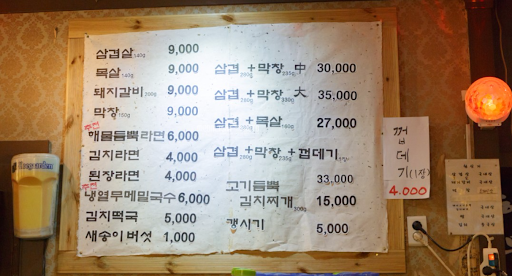 삼겹살 140g 9,000
목살 140g 9,000
돼지갈비 200g 9,000
막창 150g 9,000
추천
해물듬뿍라면 6,000
김치라면 4,000
된장라면 4,000
추천
냉열무메밀국수 6,000
김치떡국 5,000
새송이버섯 1,000
삼겹 + 막창 中 30,000
삼겹 + 막창 大 35,000
삼겹 + 목살 27,000
삼겹 + 막창 + 껍데기
33,000
고기듬뿍
김치찌개 300g 15,000
갱시기 5,000
껍
데
기(1장)
4.000